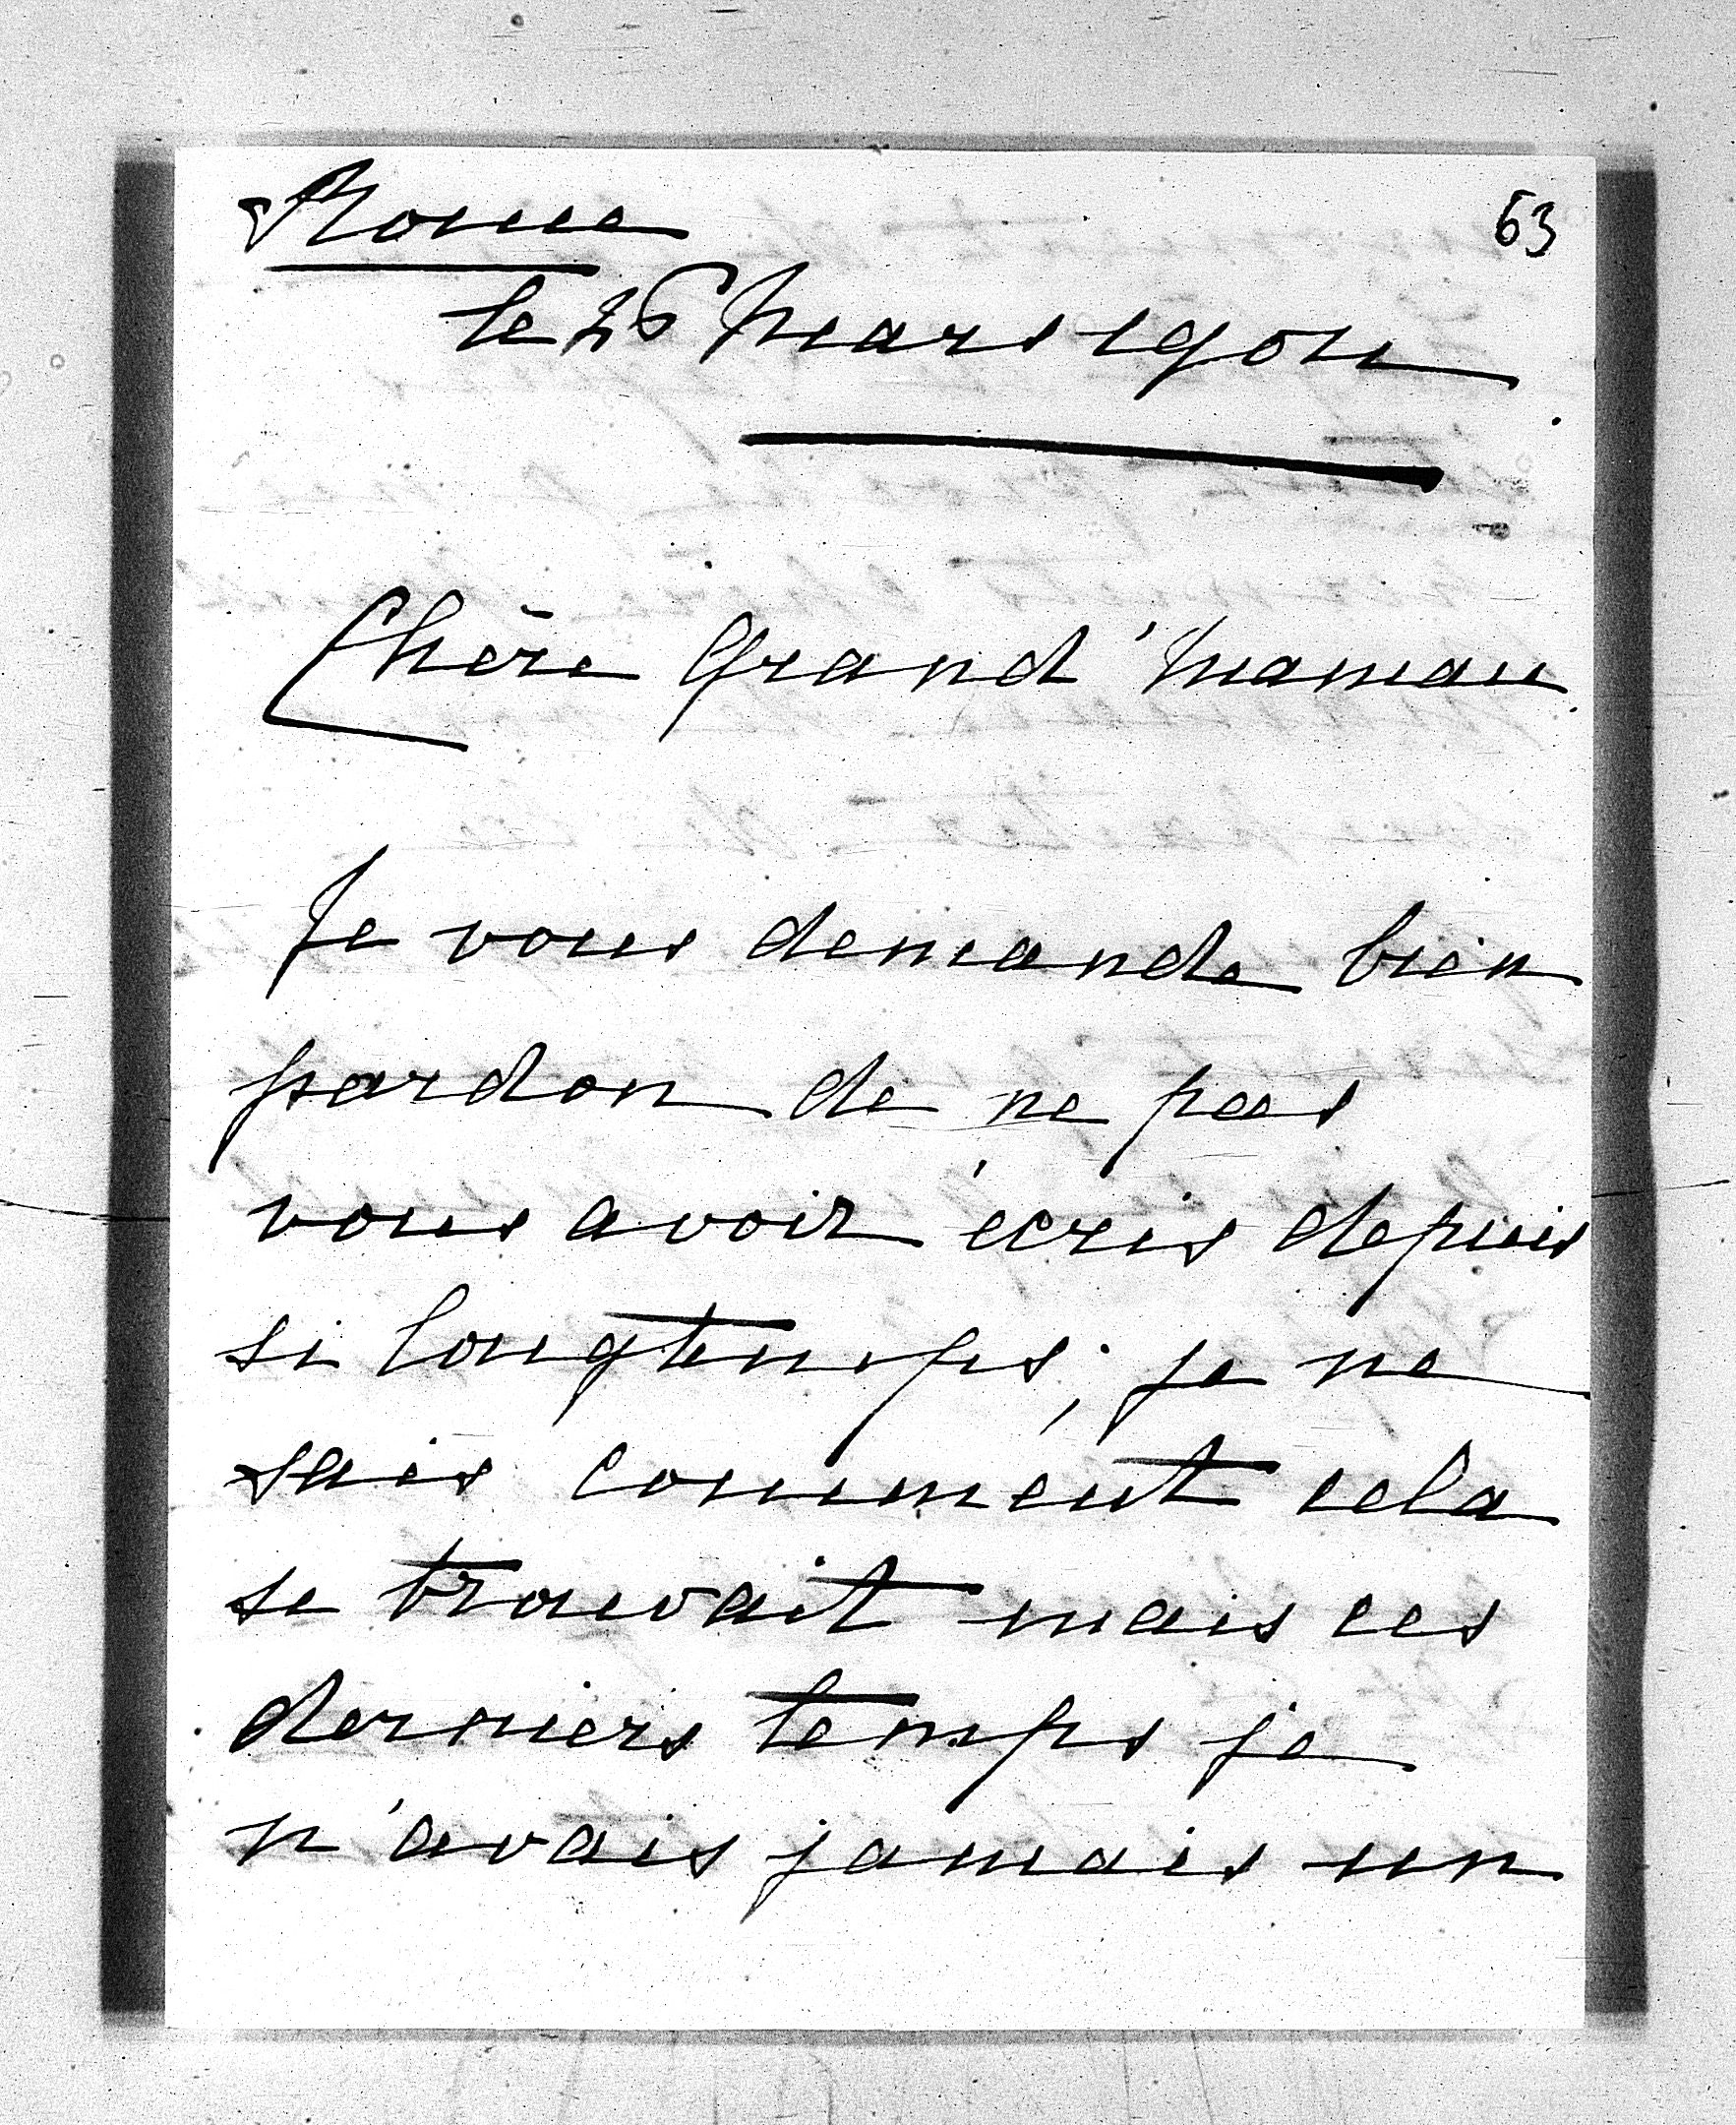 Rome
63
le 26 Mars 1904
Chère Grand'Maman
Je vous demande bien
pardon de ne pas
vous avoir écris depuis
si longtemps; je ne
sais comment cela
se trouvait mais ces
derniers temps je
n'avais jamais un